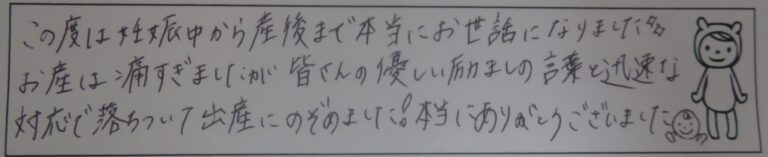 この度は妊娠中から産後まで本当にお世話になりました
お産は痛すぎましたが皆さんの優しい励ましの言葉と迅速な
対応で落ちついて出産にのぞめました!本当にありがとうございました